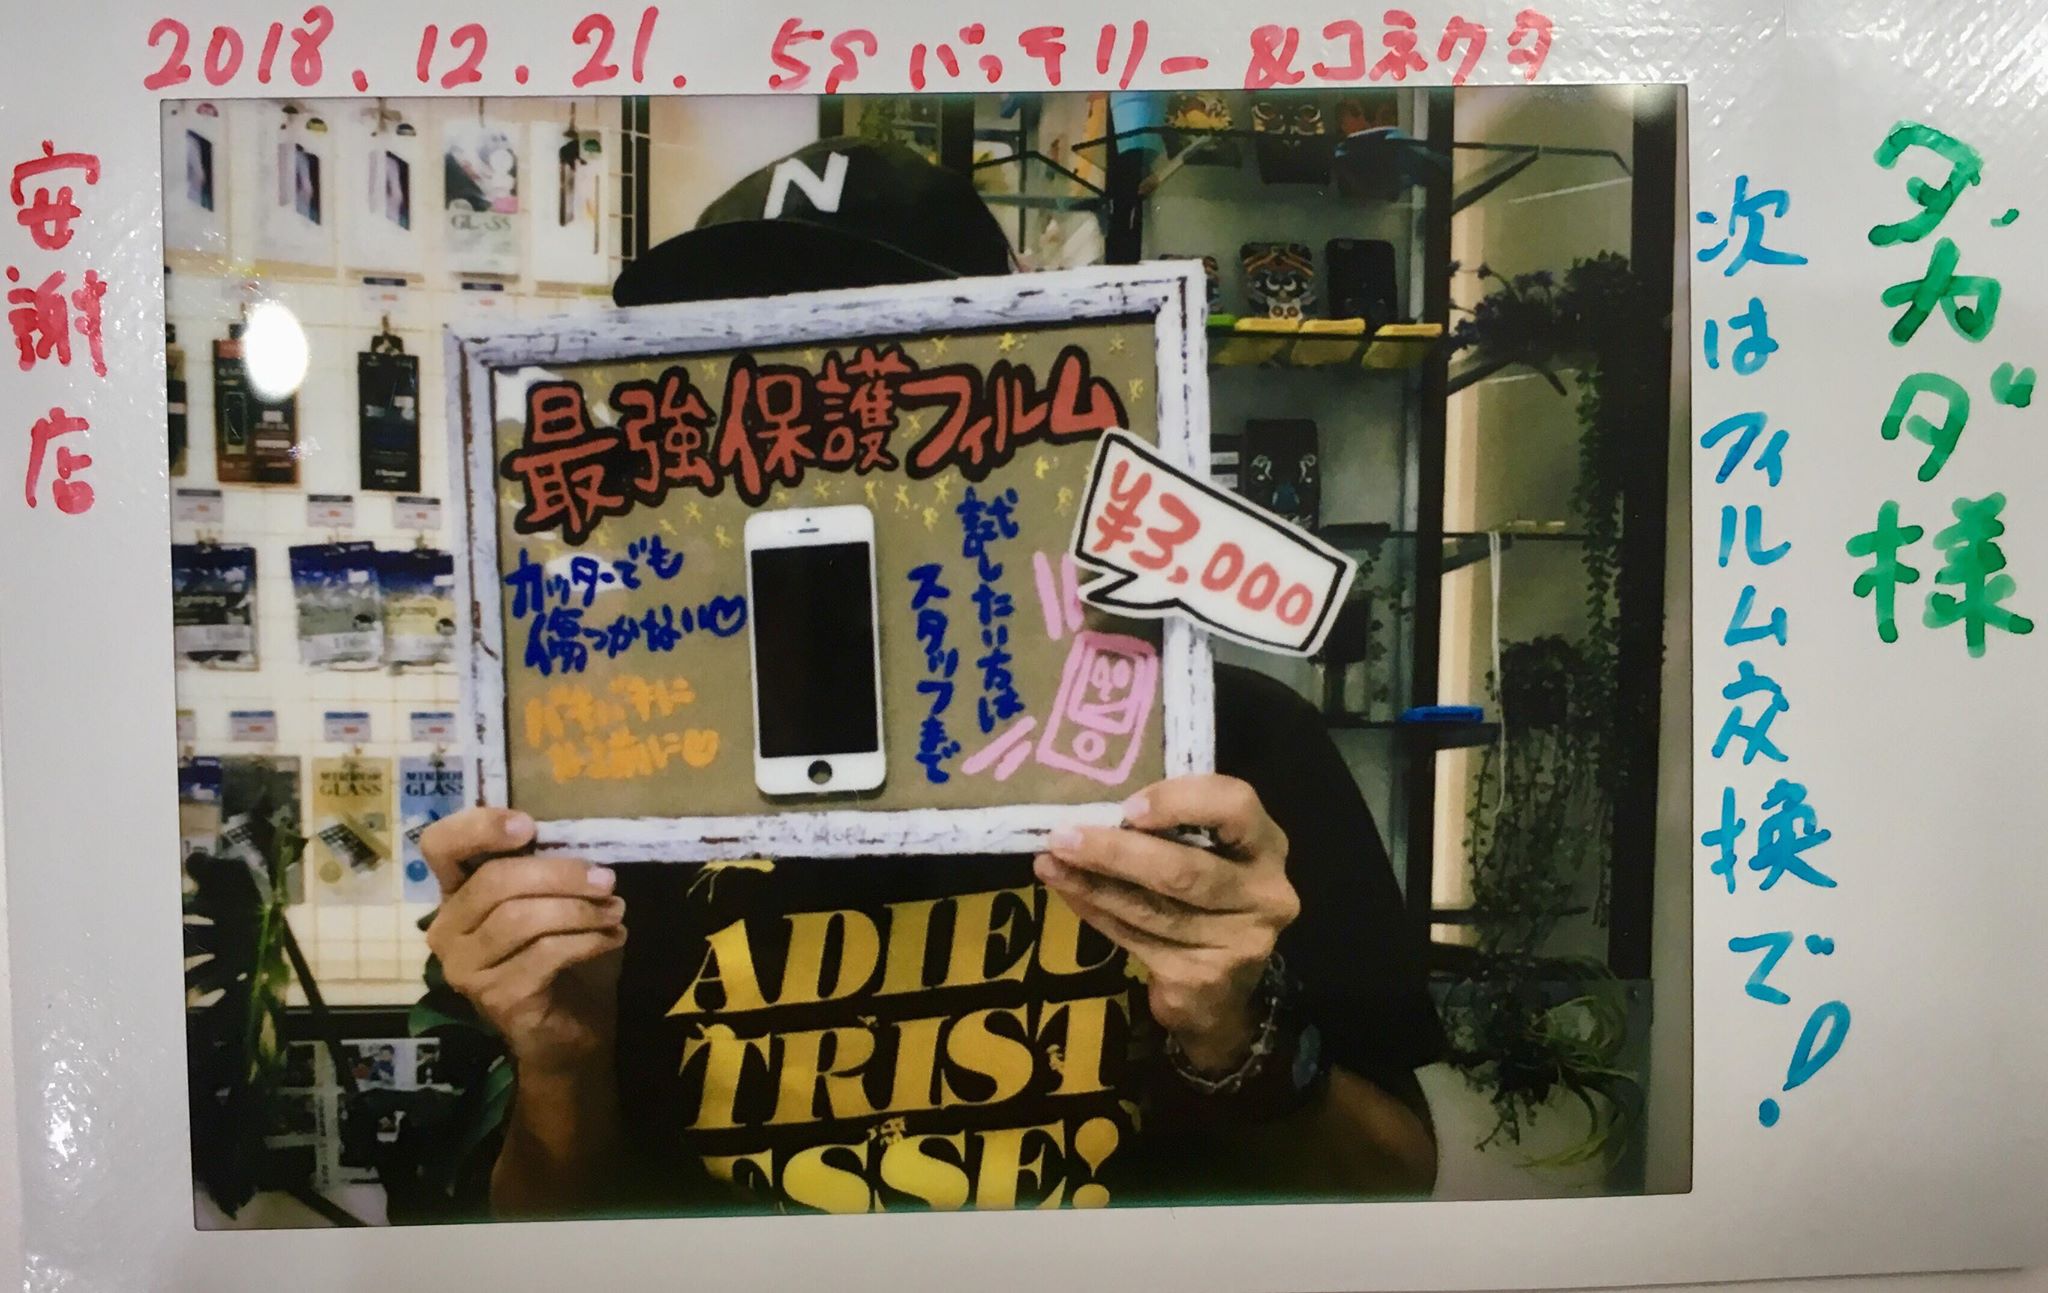 2018.12.21. 5S バッテリー&コネクタ
安謝店
タカダ様
次はフィルム交換で!
N
最強保護フィルム
¥3,000
カッターでも
傷つかない♡
バキバキに
なる前に♡
試したい方は
スタッフまで
GLASS
MIRROR
GLASS
MIRROR
GLASS
ADIEU
TRIST
ESSE!